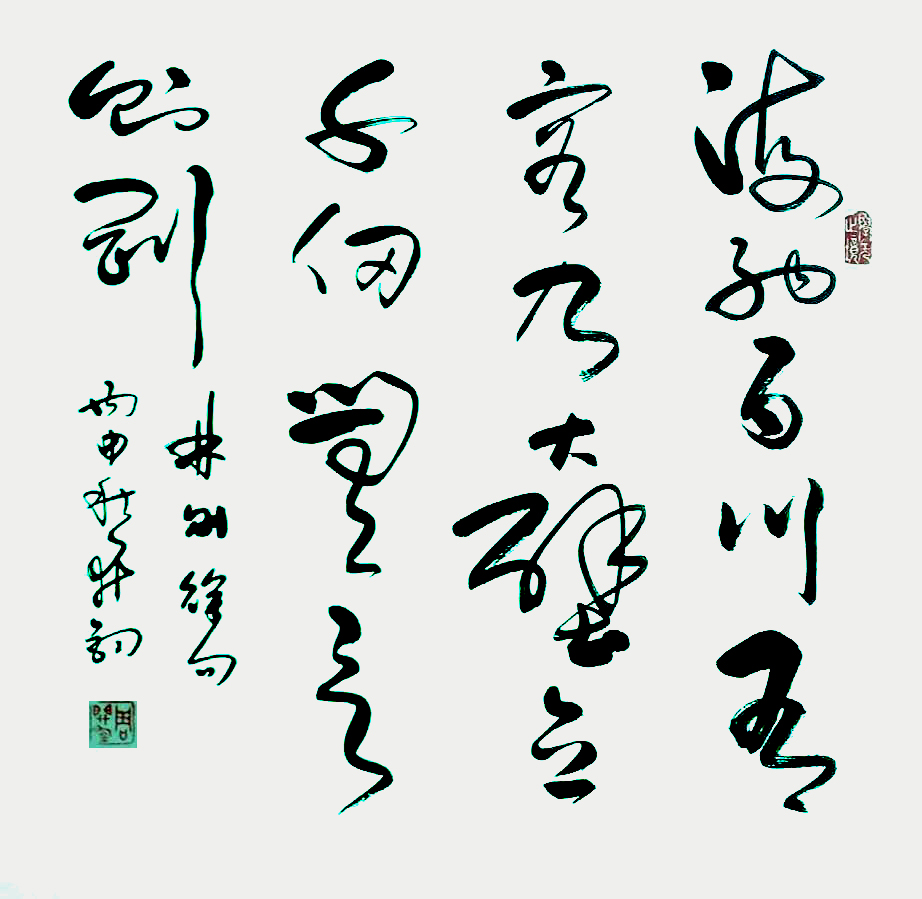 海納百川有
容乃大壁立
千仞無欲
則剛
林則徐句
丙申秋